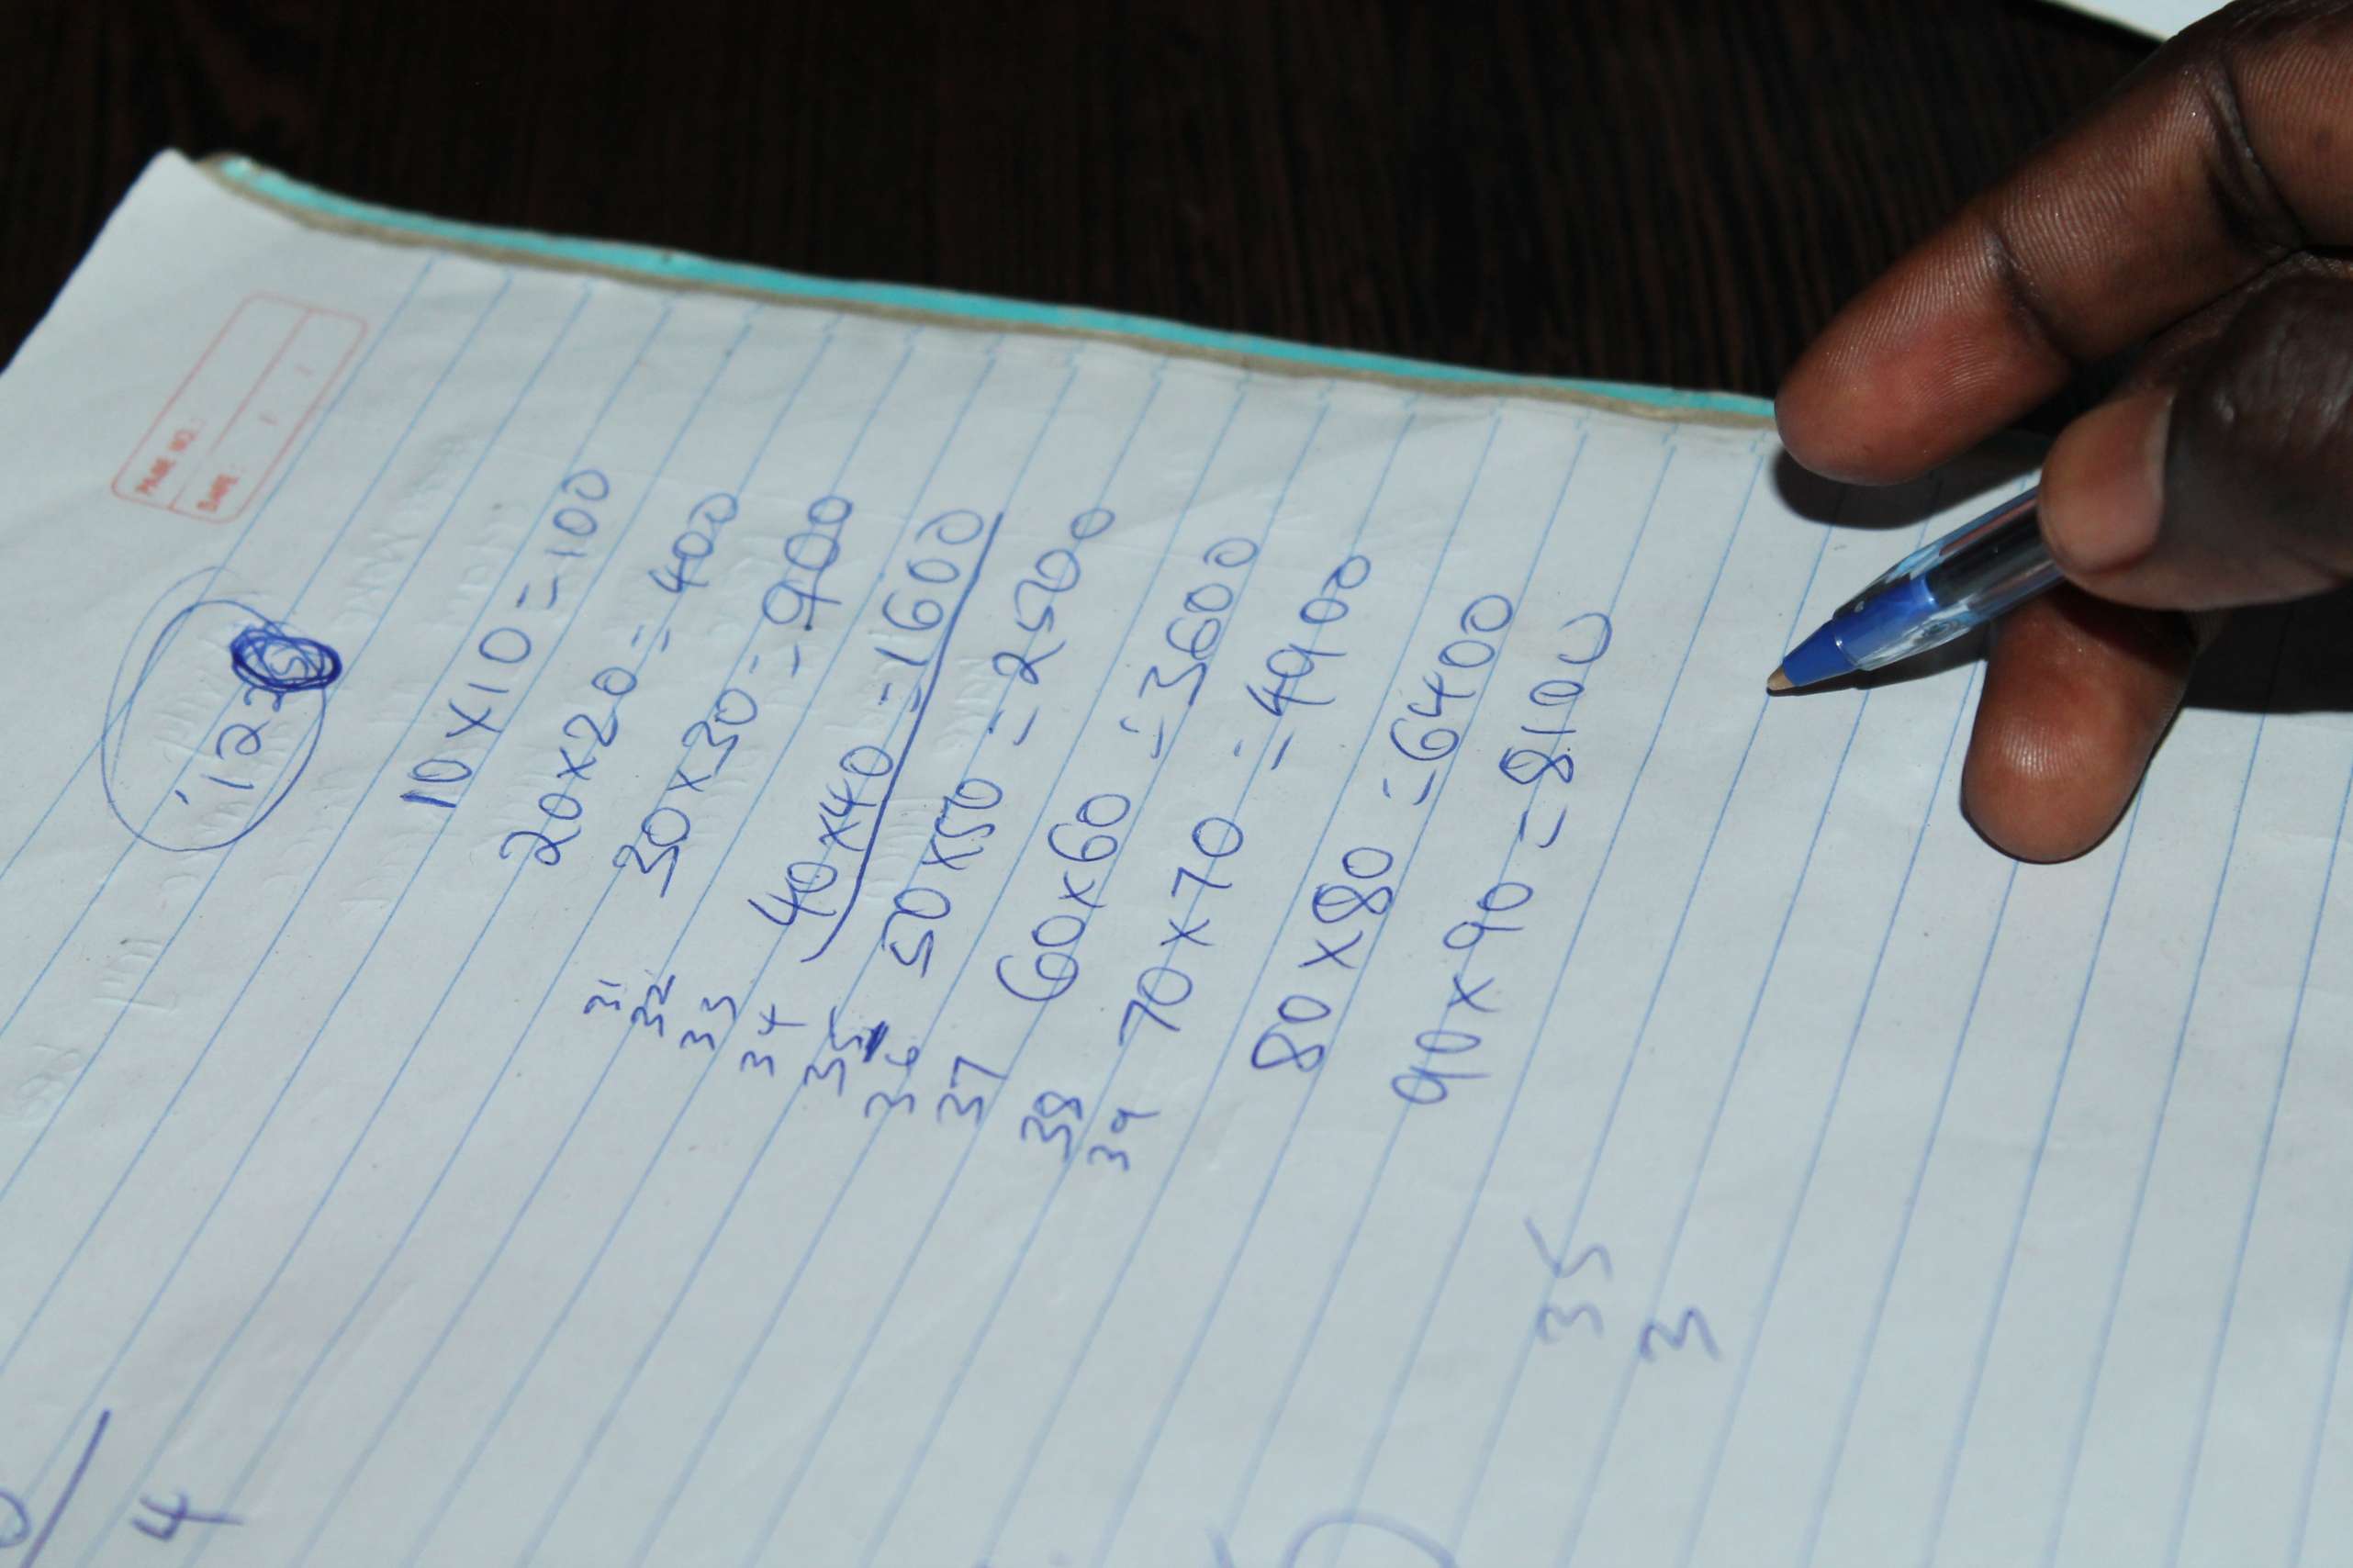 PAGE NO.:
DATE: / /
10 x 10 = 100
20 x 20 = 400
30 x 30 = 900
40 x 40 = 1600
50 x 50 = 2500
60 x 60 = 3600
70 x 70 = 4900
80 x 80 = 6400
90 x 90 = 8100
31
32
33
34
35
36
37
38
39
35
3
4